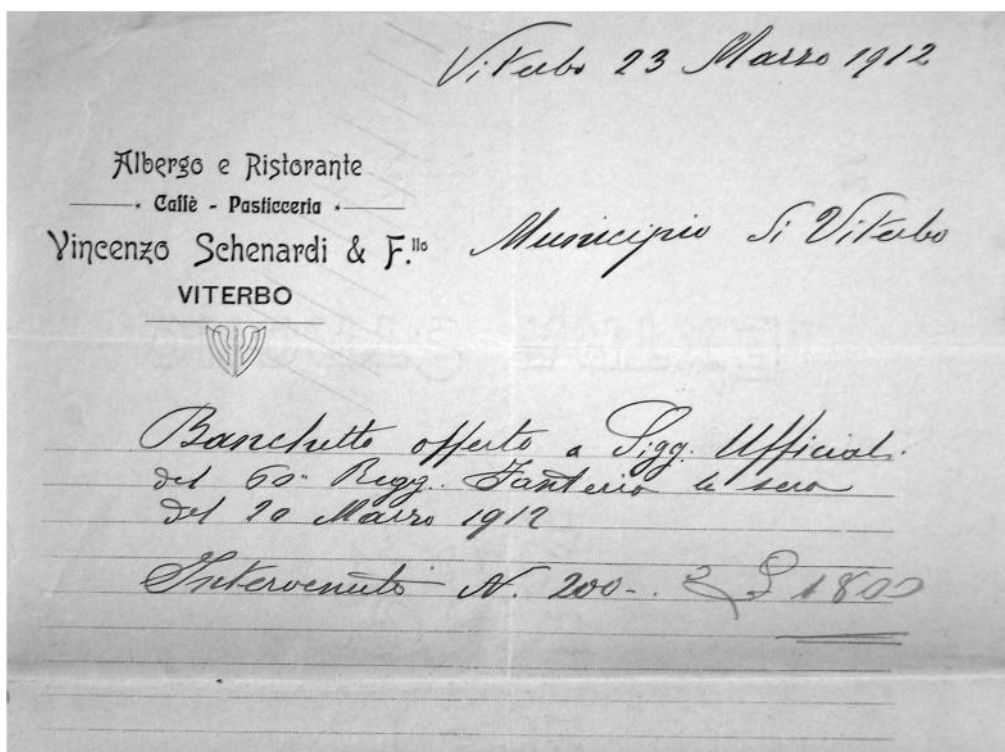 Viterbo 23 Marzo 1912
Albergo e Ristorante
Caffè - Pasticceria
Vincenzo Schenardi & F.llo
VITERBO
Municipio di Viterbo
Banchetto offerto a Sigg. Ufficiali
del 60º Regg. Fanteria la sera
del 20 Marzo 1912
Intervenuti N. 200 - £ 1800